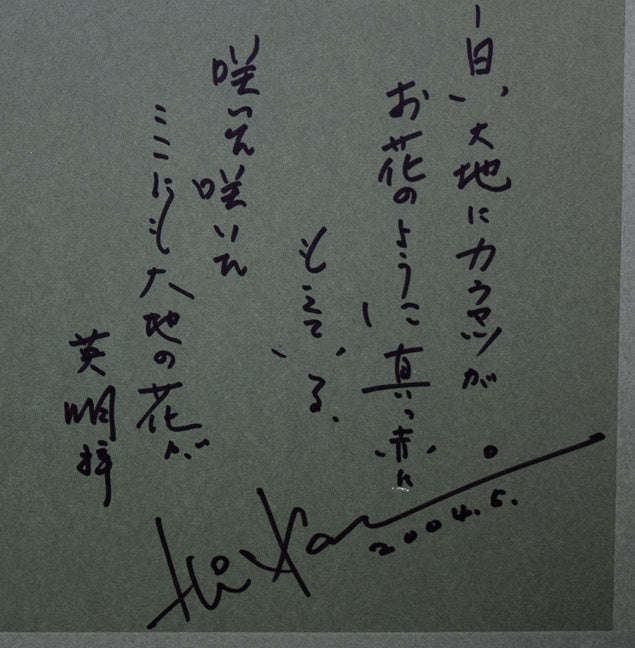 一日、大地に
お花のように真っ赤に
もえている.
咲いた咲いた
ここにも大地の花が
英明
2004.5.